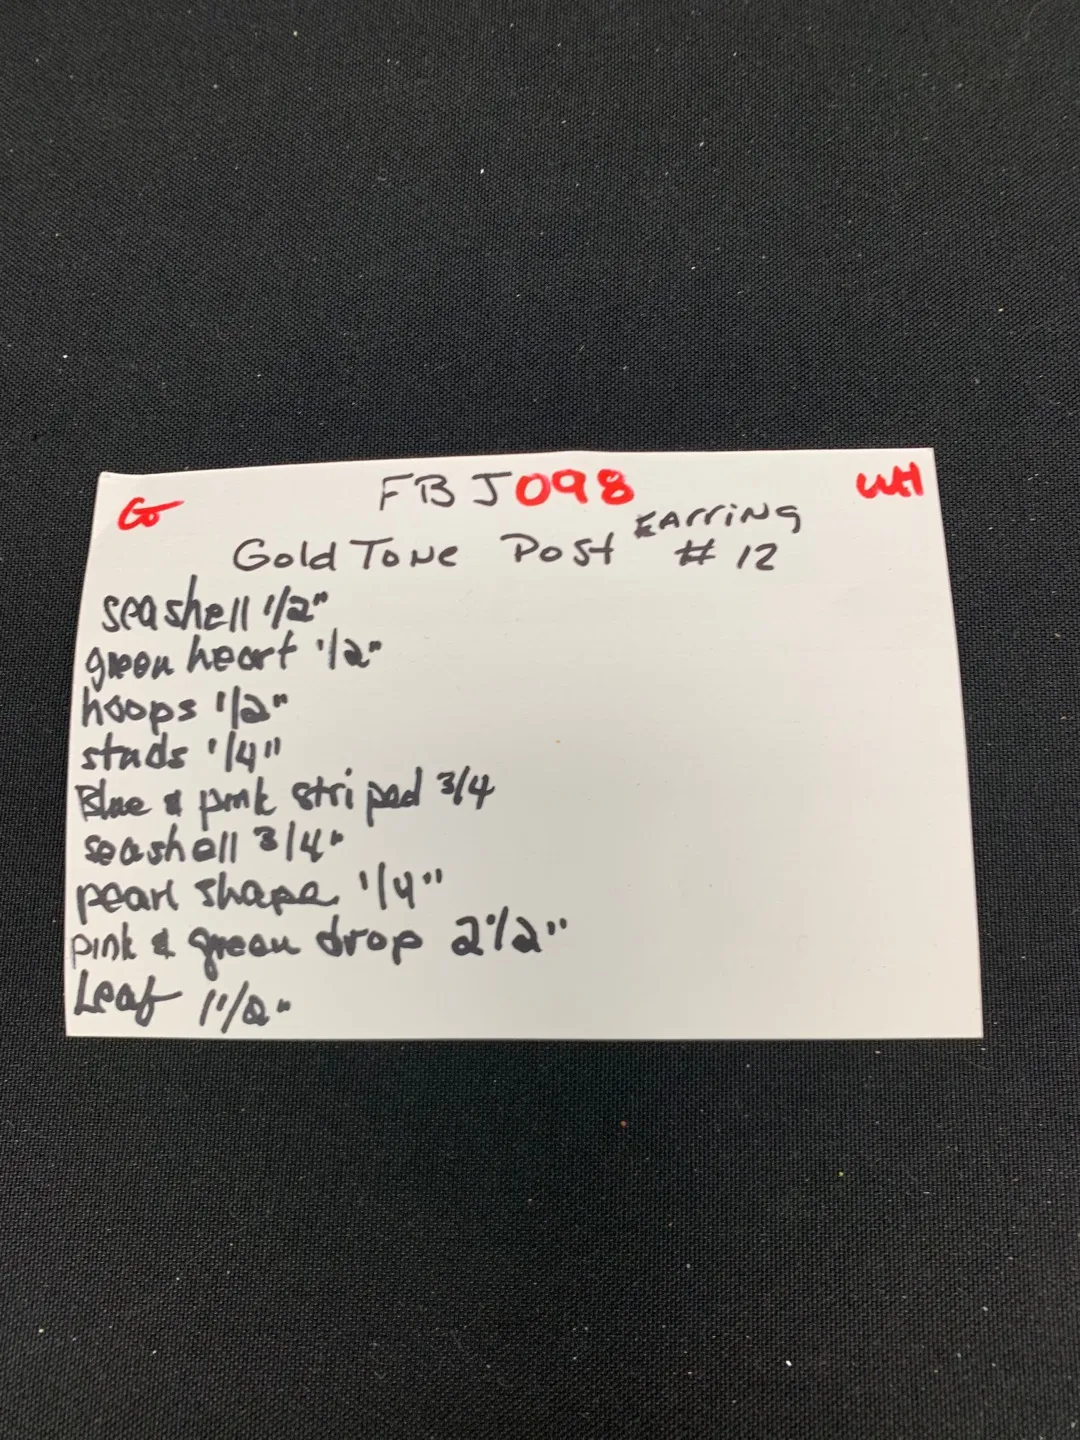 Go FBJ098 WH
Gold Tone Post Earring #12
seashell 1/2"
green heart 1/2"
hoops 1/2"
studs 1/4"
Blue & pink striped 3/4
seashell 3/4"
pearl shape 1/4"
pink & green drop 2 1/2"
Leaf 1 1/2"